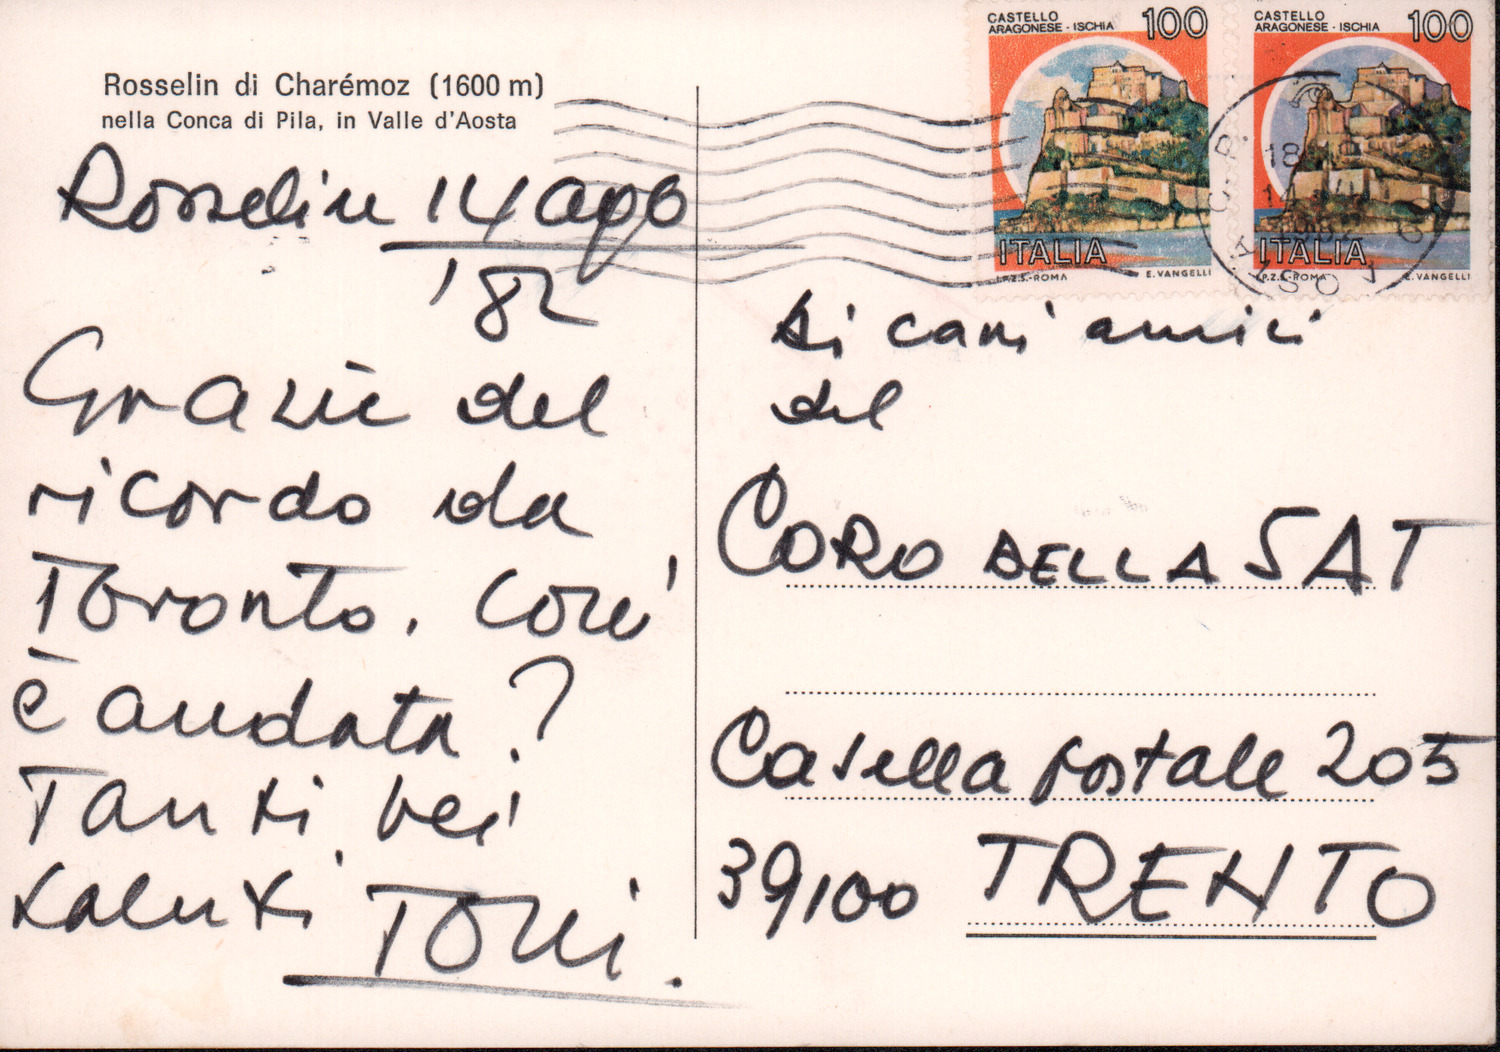 Rosselin di Charémoz (1600 m)
nella Conca di Pila, in Valle d'Aosta
Rosselin 14 ago
'82
Grazie del
ricordo da
Toronto. Com'
è andata?
Tanti bei
saluti
Toni.
CASTELLO
ARAGONESE - ISCHIA
100
ITALIA
I.P.Z.S.-ROMA
E. VANGELLI
CASTELLO
ARAGONESE - ISCHIA
100
ITALIA
I.P.Z.S.-ROMA
E. VANGELLI
AOSTA
Ai cari amici
del
CORO DELLA SAT
Casella postale 205
39100 TRENTO